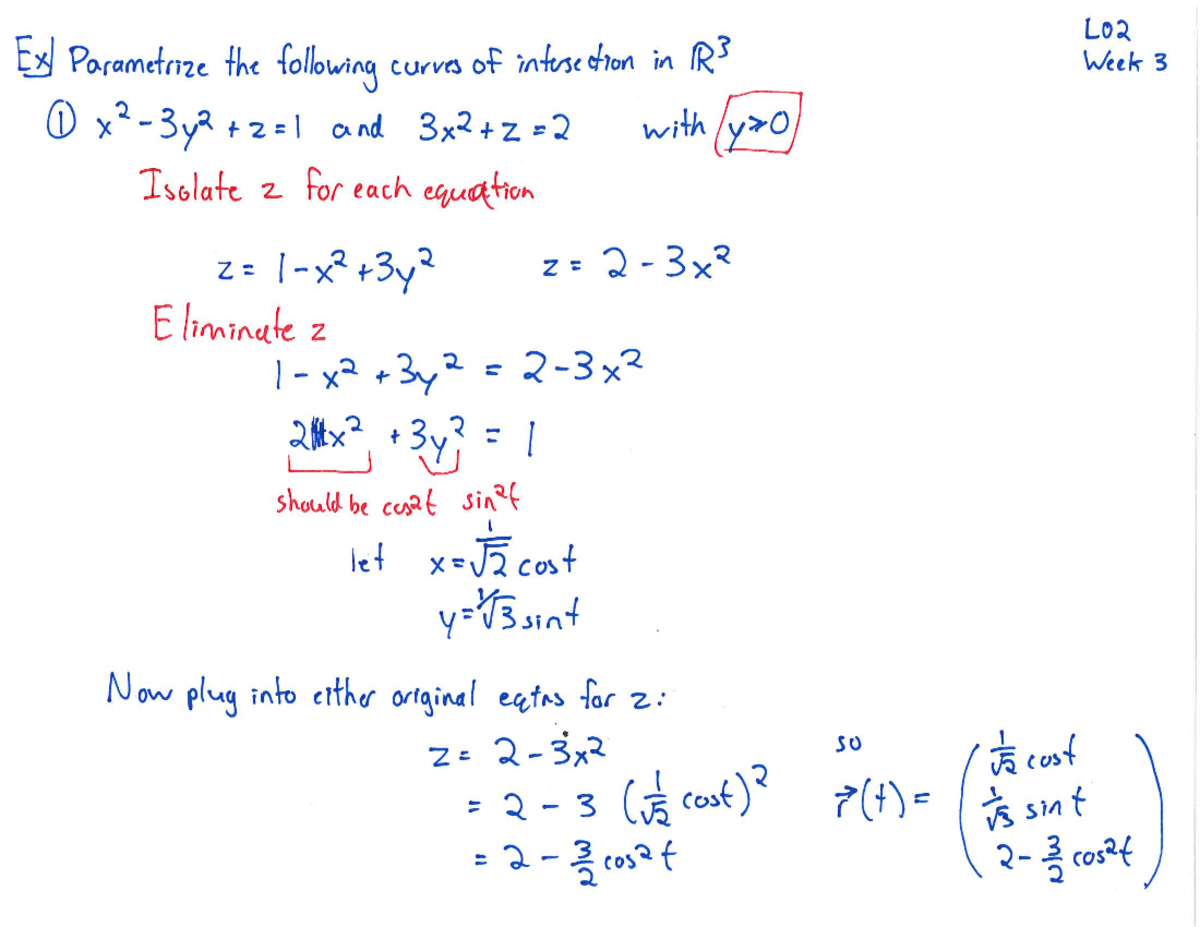 Ex| Parametrize the following curves of intersection in ℝ³
LO2
Week 3
① x² - 3y² + z = 1 and 3x² + z = 2 with y≥0
Isolate z for each equation
z = 1 - x² + 3y² z = 2 - 3x²
Eliminate z
1 - x² + 3y² = 2 - 3x²
2x² + 3y² = 1
should be cos²t sin²t
let x = 1/√2 cos t
y = 1/√3 sin t
Now plug into either original eqtns for z:
z = 2 - 3x² so
= 2 - 3 (1/√2 cos t)² r⃗(t) = ( 1/√2 cos t
1/√3 sin t
= 2 - 3/2 cos²t 2 - 3/2 cos²t )